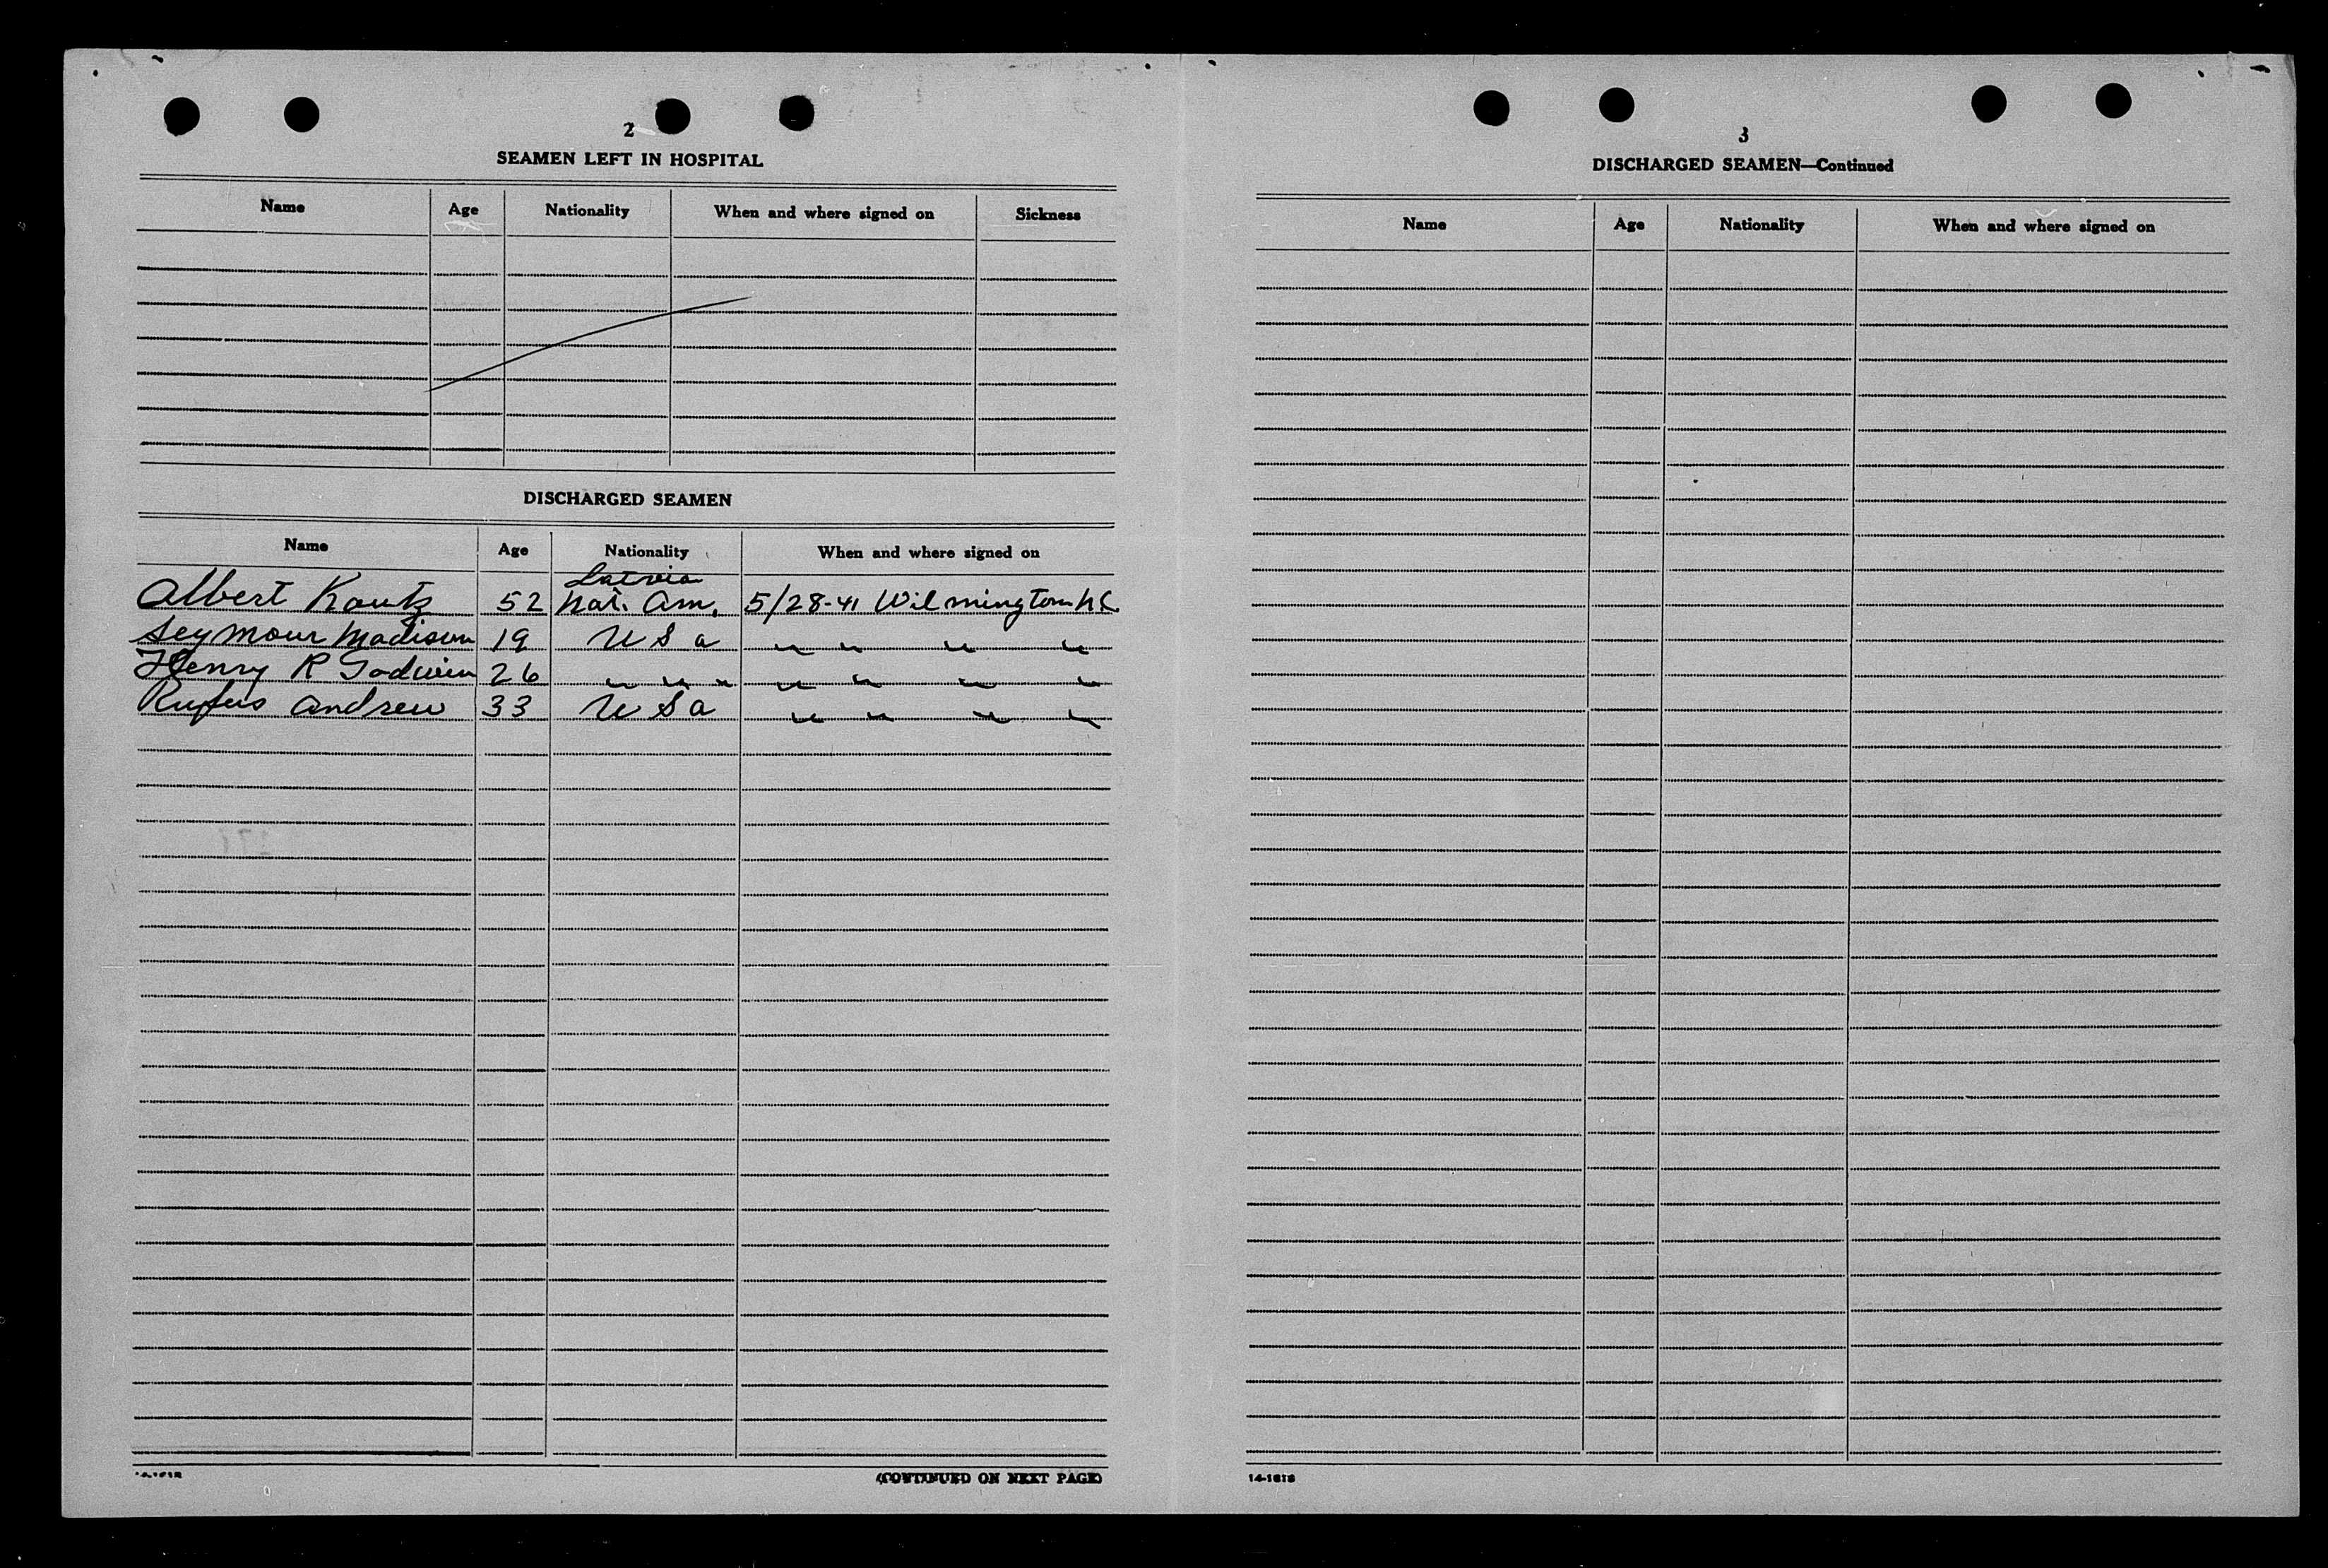 2
SEAMEN LEFT IN HOSPITAL
Name Age Nationality When and where signed on Sickness
DISCHARGED SEAMEN
Name Age Nationality When and where signed on
Latvia
Albert Kautz 52 Nat. Am. 5/28-41 Wilmington N.C.
Seymour Madison 19 U S a " " " "
Henry R Godwin 26 " " " " " " "
Rufus Andrew 33 U S a " " " "
(CONTINUED ON NEXT PAGE)
3
DISCHARGED SEAMEN—Continued
Name Age Nationality When and where signed on
14-1618